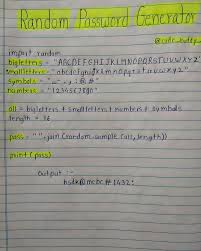 Random Password Generator
import random
bigletters = "ABCDEFGHIJKLMNOPQRSTUVWXYZ"
smallletters = "abcdefghijklmnopqrstuvwxyz"
symbols =
numbers = "1234567890"
all = bigletters + smallletters + numbers + symbols
length = 16
pass = "".join(random.sample(all, length))
print(pass)
Output :-